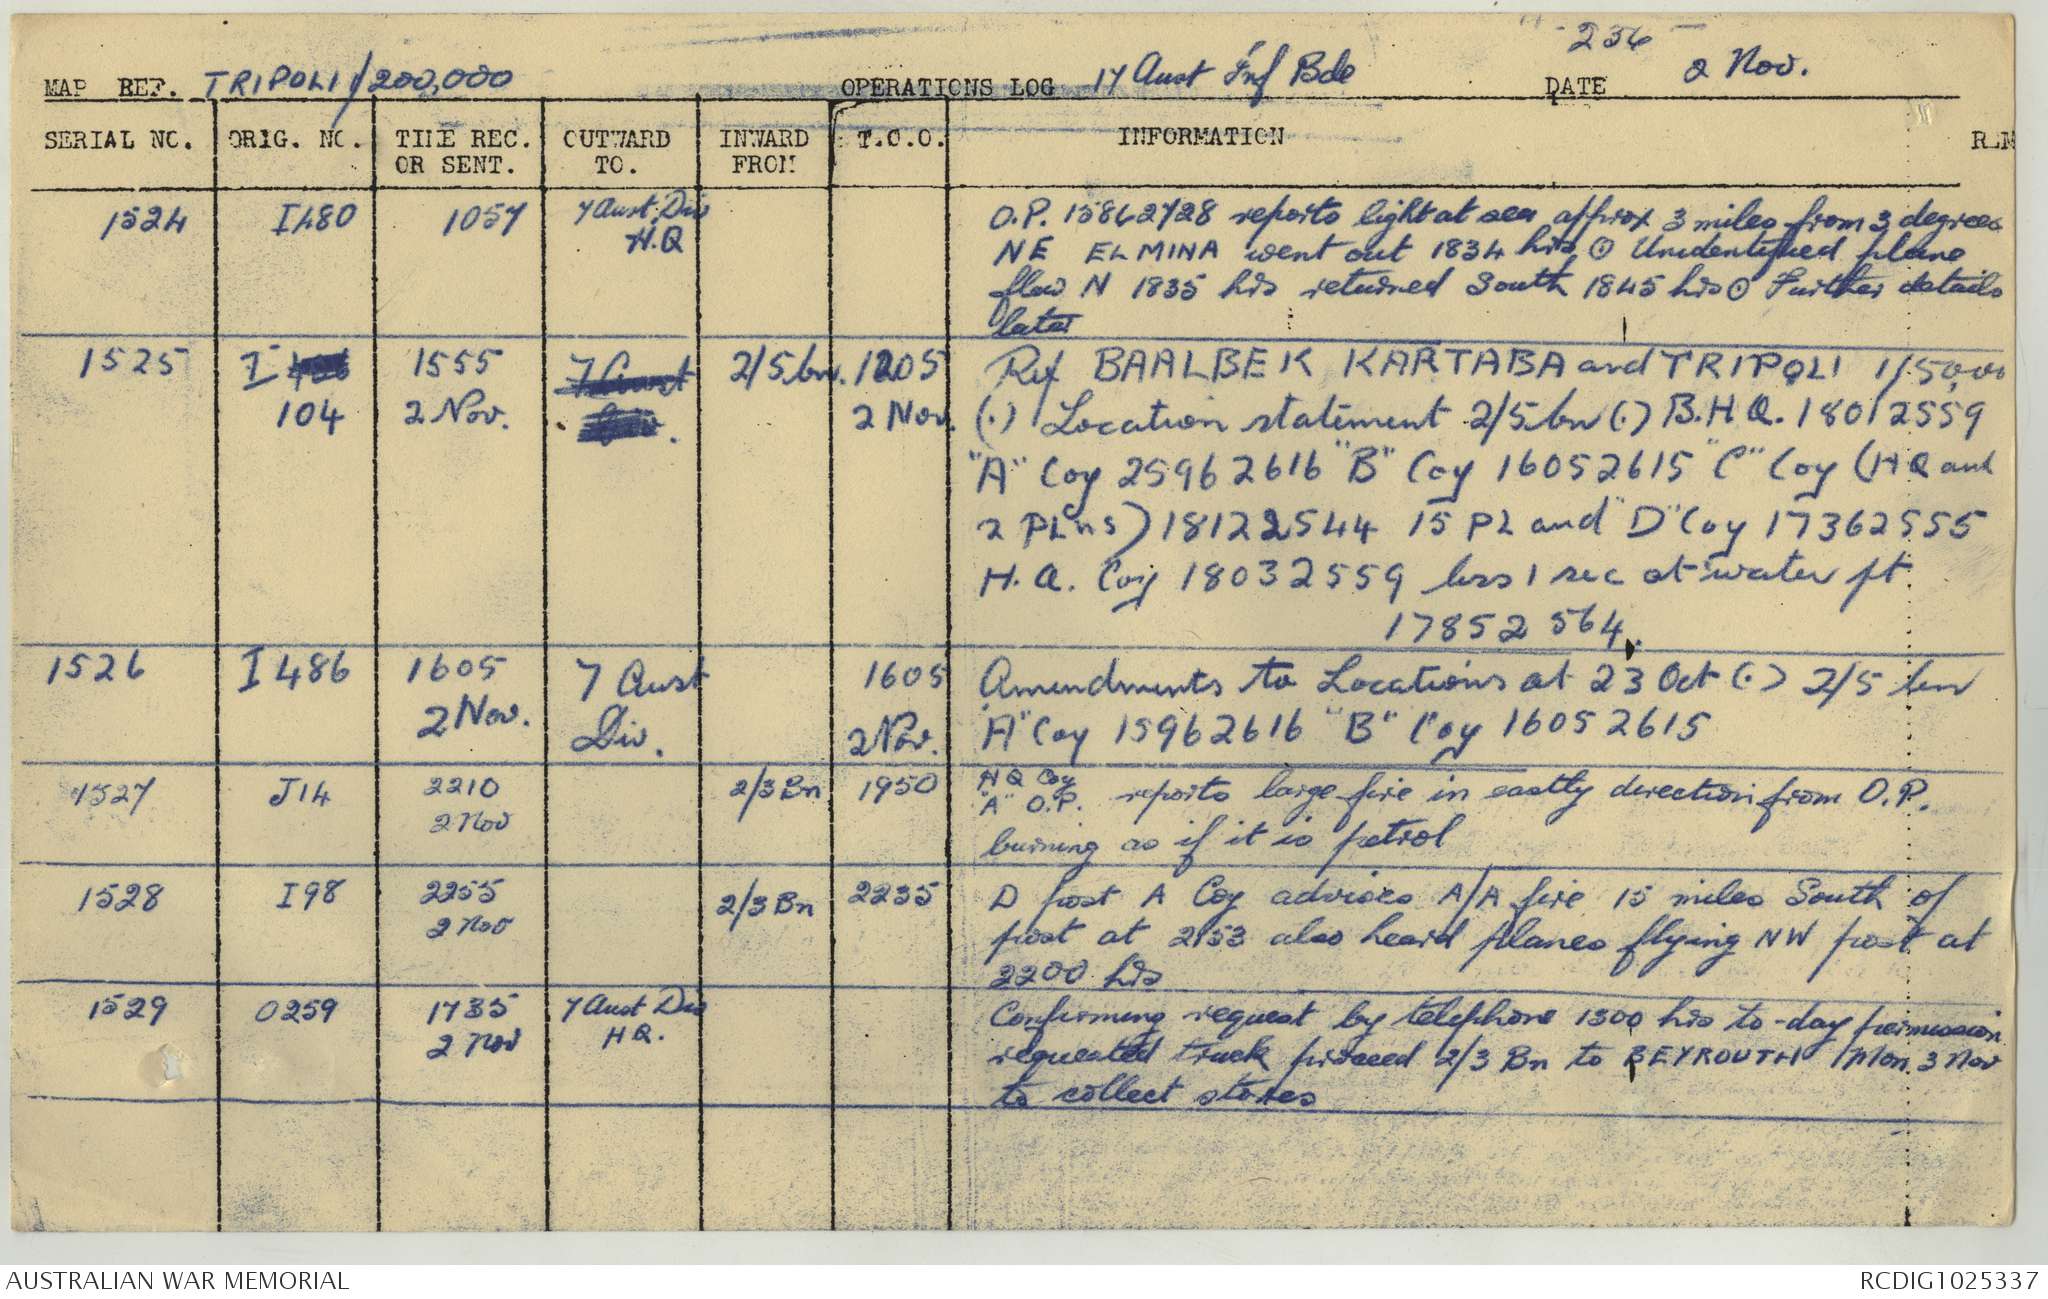 - 236 -
MAP REF. TRIPOLI 1/200,000 OPERATIONS LOG 17 Aust Inf Bde DATE 2 Nov.
SERIAL NO. ORIG. NO. TIME REC. OR SENT. OUTWARD TO. INWARD FROM T.O.O. INFORMATION REM
1524 I480 1057 7 Aust. Div H.Q O.P. 15862728 reports light at sea approx 3 miles from 3 degrees
NE EL MINA went out 1834 hrs ⊙ Unidentified plane
flew N 1835 hrs returned South 1845 hrs ⊙ Further details
later
1525 I 104 1555 2 Nov. 2/5 bn. 1205 2 Nov. Ref BAALBEK KARTABA and TRIPOLI 1/50,000
(.) Location statement 2/5 bn (.) B.H.Q. 18012559
"A" Coy 25962616 "B" Coy 16052615 "C" Coy (HQ and
2 PLns) 18122544 15 PL and "D" Coy 17362555
H.Q. Coy 18032559 less 1 sec at water pt.
17852564.
1526 I 486 1605 2 Nov. 7 Aust Div. 1605 2 Nov. Amendments to Locations at 23 Oct (.) 2/5 bn
"A" Coy 15962616 "B" Coy 16052615
1527 J14 2210 2 Nov 2/3 Bn 1950 HQ Coy "A" O.P. reports large fire in eastly direction from O.P.
burning as if it is petrol
1528 I98 2255 2 Nov 2/3 Bn 2235 D post A Coy advises A/A fire 15 miles South of
post at 2153 also heard planes flying NW post at
2200 hrs
1529 O259 1735 2 Nov 7 Aust Div HQ. Confirming request by telephone 1300 hrs to-day permission
requested truck proceed 2/3 Bn to BEYROUTH Mon. 3 Nov
to collect stores
AUSTRALIAN WAR MEMORIAL RCDIG1025337